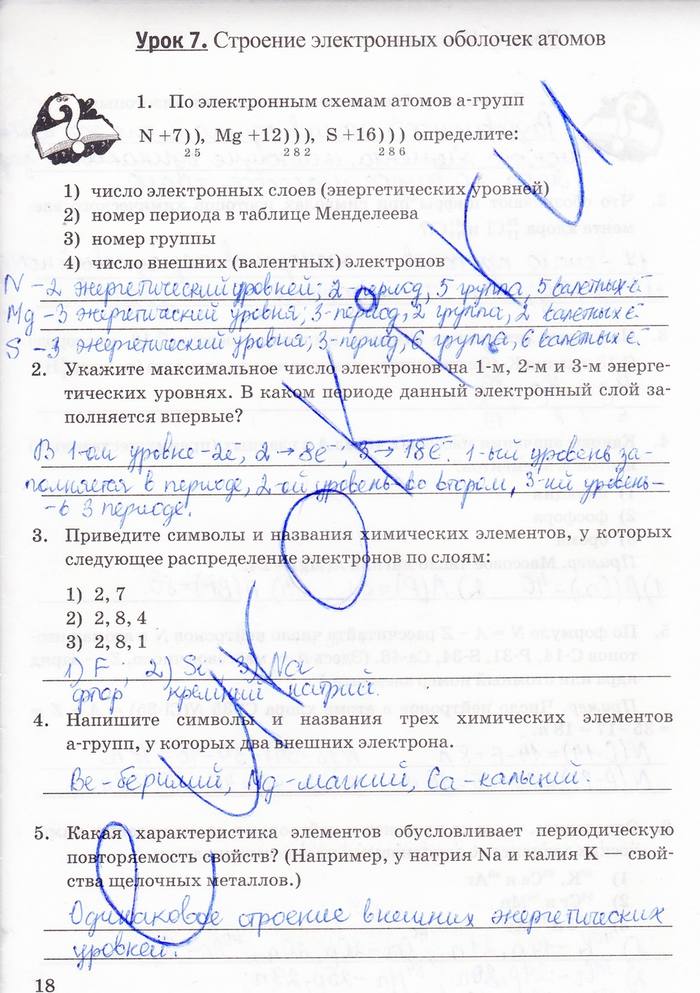 Урок 7. Строение электронных оболочек атомов
1. По электронным схемам атомов а-групп
N +7) ), Mg +12) ) ), S +16) ) ) определите:
2 5 2 8 2 2 8 6
1) число электронных слоев (энергетических уровней)
2) номер периода в таблице Менделеева
3) номер группы
4) число внешних (валентных) электронов
N – 2 энергетический уровней; 2-период, 5 группа, 5 валетных ē.
Mg – 3 энергетический уровня; 3-период, 2 группа, 2 валетных ē
S – 3 энергетический уровня; 3-период, 6 группа, 6 валетых ē.
2. Укажите максимальное число электронов на 1-м, 2-м и 3-м энерге-
тических уровнях. В каком периоде данный электронный слой за-
полняется впервые?
В 1-ом уровне-2е, 2 → 8е⁻, 3 → 18е. 1-ый уровень за-
полняется в периоде, 2-ой уровень-во втором, 3-ий уровень-
-в 3 периоде.
3. Приведите символы и названия химических элементов, у которых
следующее распределение электронов по слоям:
1) 2, 7
2) 2, 8, 4
3) 2, 8, 1
1) F, 2) Si, 3) Na
фтор кремний натрий.
4. Напишите символы и названия трех химических элементов
а-групп, у которых два внешних электрона.
Be-берилий, Mg-магний, Ca-кальций.
5. Какая характеристика элементов обусловливает периодическую
повторяемость свойств? (Например, у натрия Na и калия K — свой-
ства щелочных металлов.)
Одинаковое строение внешних энергетических
уровней.
18